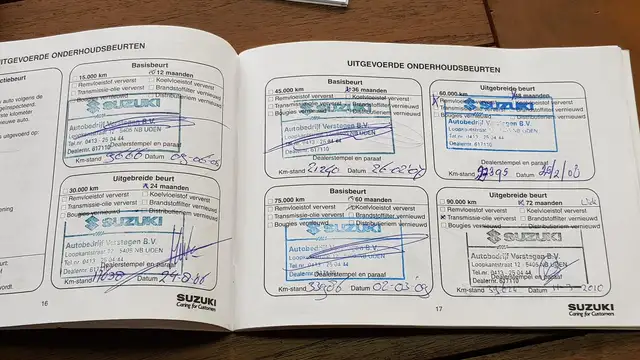 UITGEVOERDE ONDERHOUDSBEURTEN
Basisbeurt
15.000 km
12 maanden
Remvloeistof ververst
Koelvloeistof ververst
Transmissie-olie ververst
Brandstoffilter vernieuwd
Bougies vernieuwd
Distributieriem vernieuwd
SUZUKI
Autobedrijf Verstegen B.V.
5405 NB UDEN
Tel.nr. 0413 - 25 04 44
Dealernr. 617110
Km-stand
Datum
Uitgebreide beurt
30.000 km
24 maanden
Remvloeistof ververst
Koelvloeistof ververst
Transmissie-olie ververst
Brandstoffilter vernieuwd
Bougies vernieuwd
Distributieriem vernieuwd
SUZUKI
Autobedrijf Verstegen B.V.
Loopkantstraat 12 - 5405 NB UDEN
Tel.nr. 0413 - 25 04 44
Dealerstempel en paraaf
Dealernr. 617110
Km-stand
Datum 29-8-06
16
SUZUKI
Caring for Customers
UITGEVOERDE ONDERHOUDSBEURTEN
Basisbeurt
45.000 km
36 maanden
Remvloeistof ververst
Koelvloeistof ververst
Transmissie-olie ververst
Brandstoffilter vernieuwd
Bougies vernieuwd
Distributieriem vernieuwd
SUZUKI
Autobedrijf Verstegen B.V.
NB UDEN
Tel.nr. 0413 - 25 04 44
Dealernr. 617110
Dealerstempel en paraaf
Km-stand
Datum
Uitgebreide beurt
60.000 km
48 maanden
Remvloeistof ververst
Transmissie-olie ververst
Bougies vernieuwd
SUZUKI
Autobedrijf Verstegen B.V.
NB UDEN
Tel.nr. 0413 - 25 04 44
Dealernr. 617110
Dealerstempel en paraaf
Km-stand
Datum
Basisbeurt
75.000 km
60 maanden
Remvloeistof ververst
Koelvloeistof ververst
Transmissie-olie ververst
Brandstoffilter vernieuwd
Bougies vernieuwd
Distributieriem vernieuwd
SUZUKI
Tel.nr. 0413 - 25 04 44
Dealernr. 617110
Dealerstempel en paraaf
Km-stand 33906
Datum 02-03-09
Uitgebreide beurt
90.000 km
72 maanden
Remvloeistof ververst
Koelvloeistof ververst
Transmissie-olie ververst
Brandstoffilter vernieuwd
Bougies vernieuwd
Distributieriem vernieuwd
SUZUKI
Autobedrijf Verstegen B.V.
Loopkantstraat 12 - 5405 NB UDEN
Tel.nr. 0413 - 25 04 44
Dealernr. 617110
Km-stand
Datum
17
SUZUKI
Caring for Customers